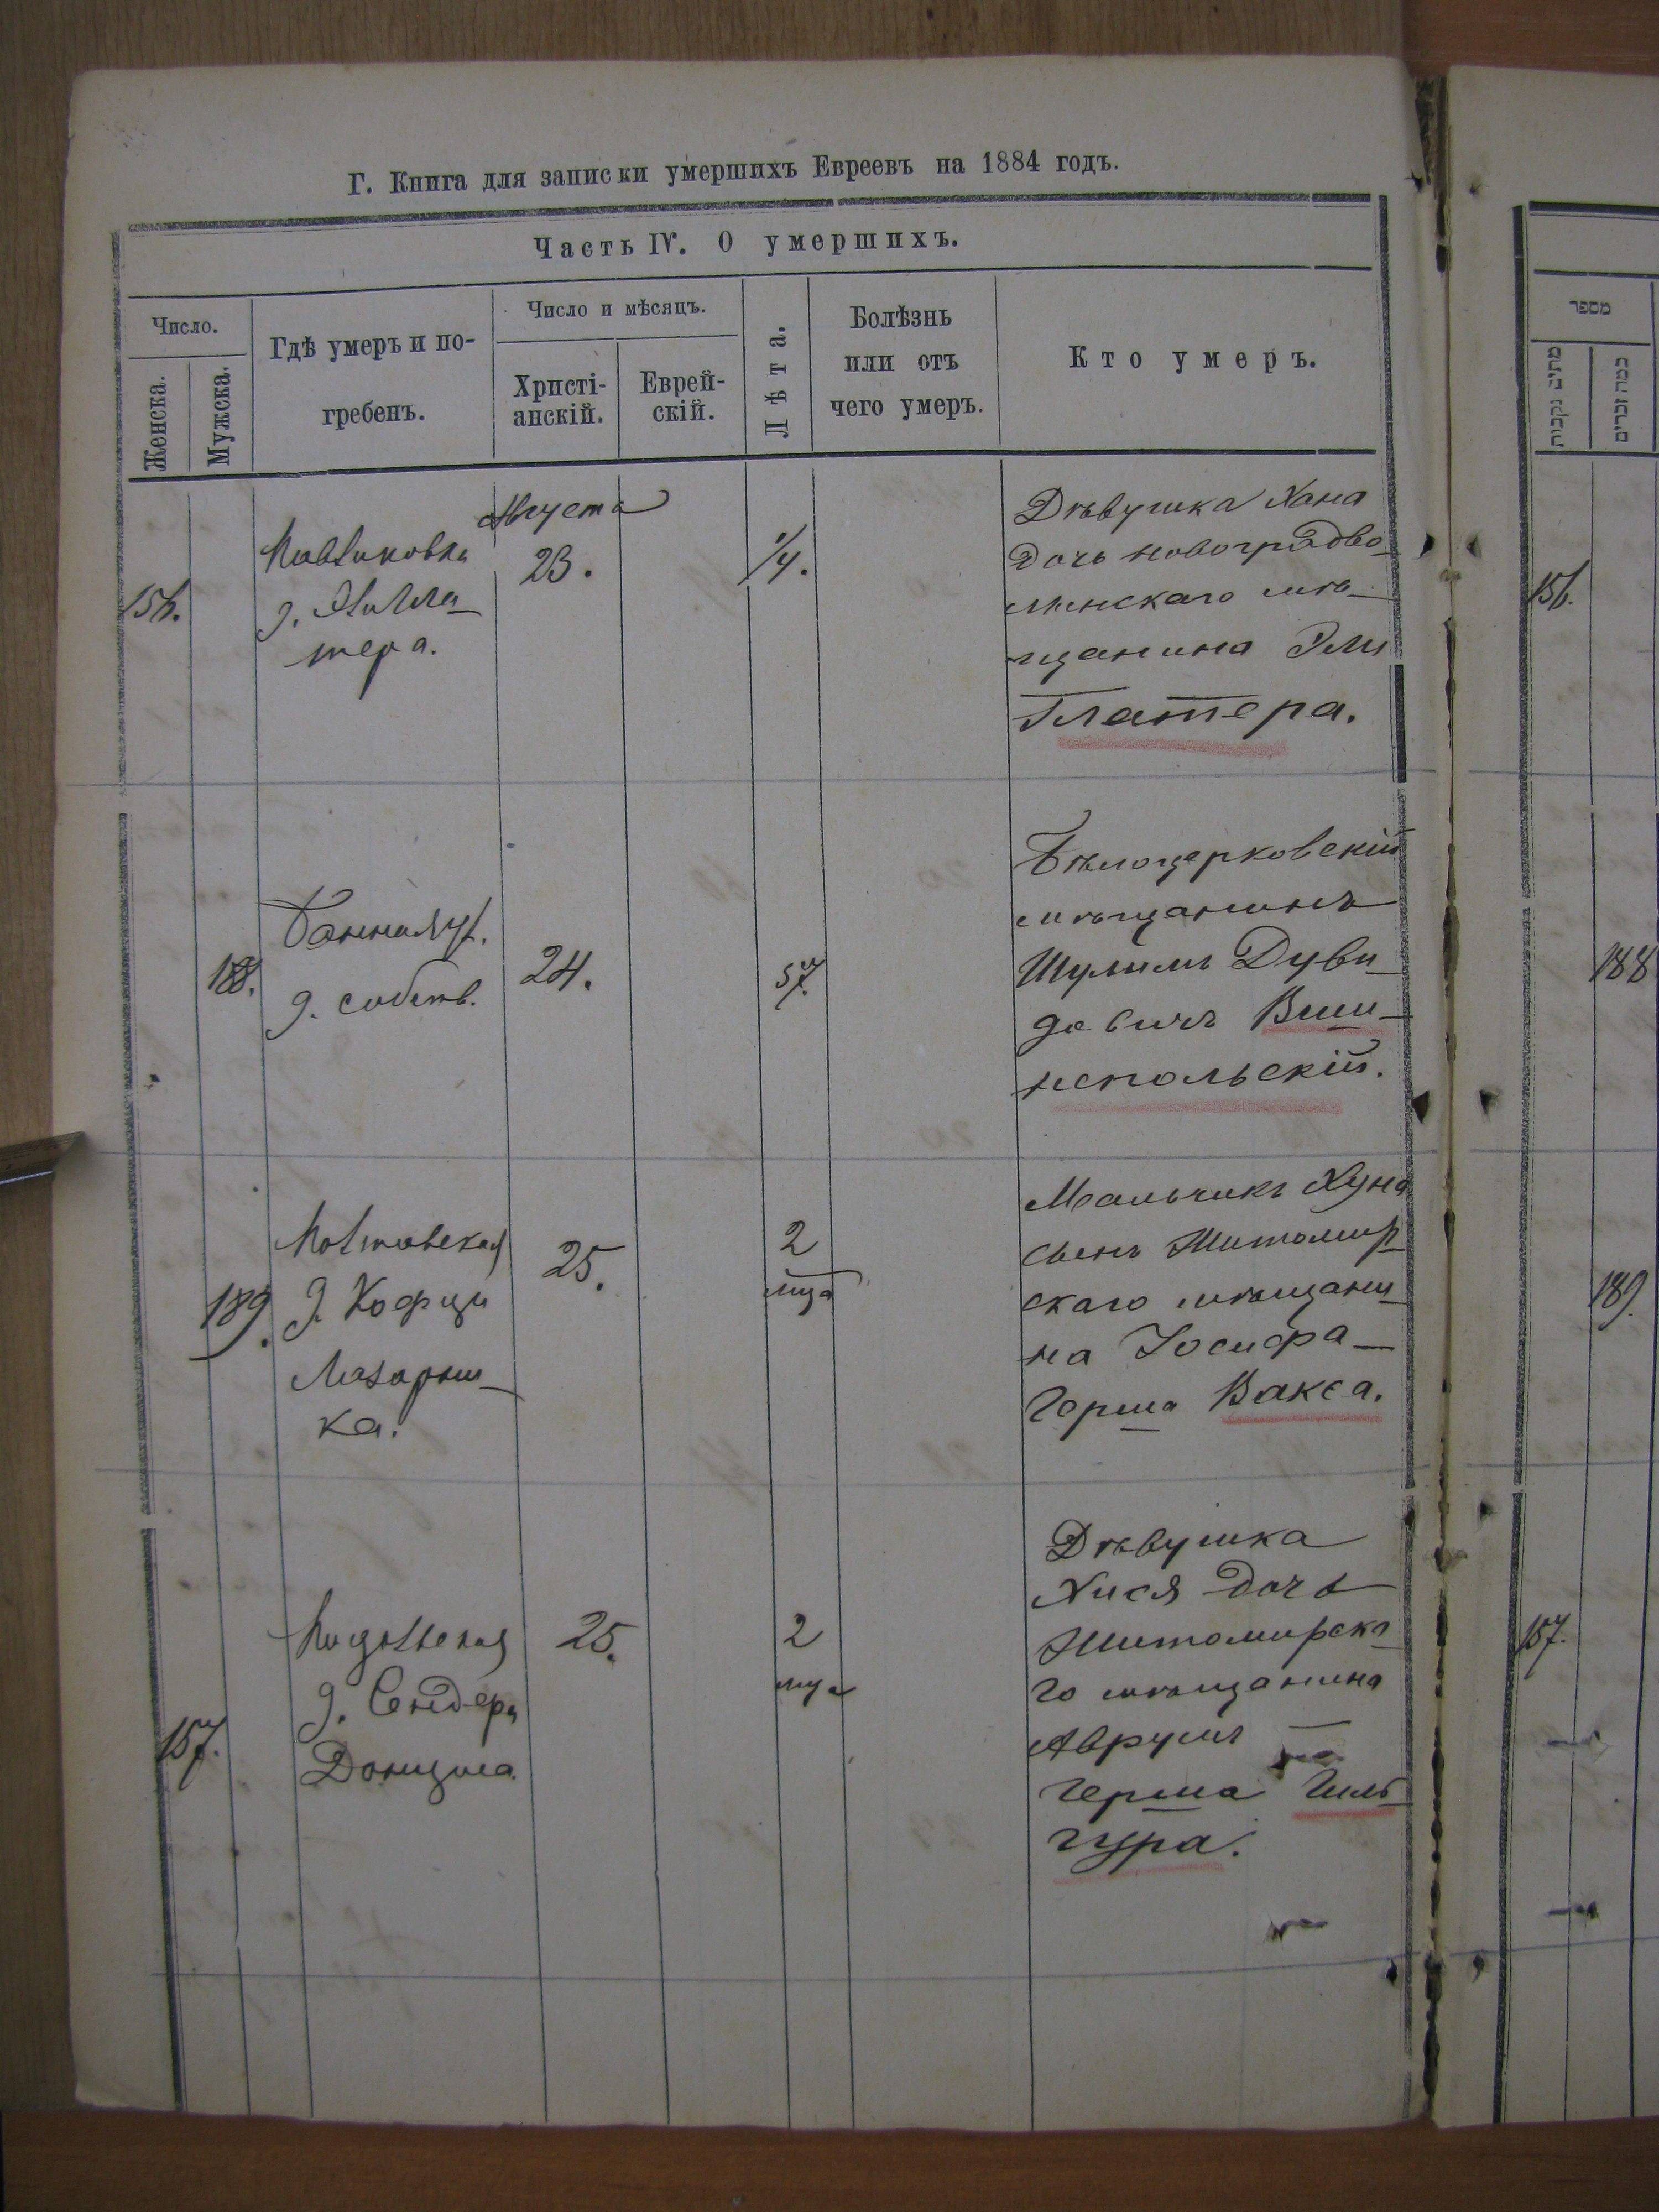 Г. Книга для записки умершихъ Евреевъ на 1884 годъ.
Часть IV. О умершихъ.
Число.
Женска.
Мужска.
Гдѣ умеръ и по-
гребенъ.
Число и мѣсяцъ.
Христі-
анскій.
Еврей-
скій.
Лѣта.
Болѣзнь
или отъ
чего умеръ.
Кто умеръ.
מספר
156.
Павликовка
д.
тера.
Августа
23.
1/4.
Дѣвушка Хана
дочь новоградво-
лынскаго мѣ-
щанина Эли
Платера.
156.
188.
д. собств.
24.
57.
Бѣлоцерковскій
мѣщанинъ
Шулимъ Дуви-
довичъ Виш-
непольскій.
188
189.
д.
Лазарни-
ка.
25.
2
мца
Мальчикъ Хуна
сынъ Житомир-
скаго мѣщани-
на Іосифа-
Герша Вакса.
189.
157.
д. Сендера
25.
2
мца
Дѣвушка
Хися дочь
Житомирска-
го мѣщанина
Аврумъ-
Герша Гиль-
гура.
157.